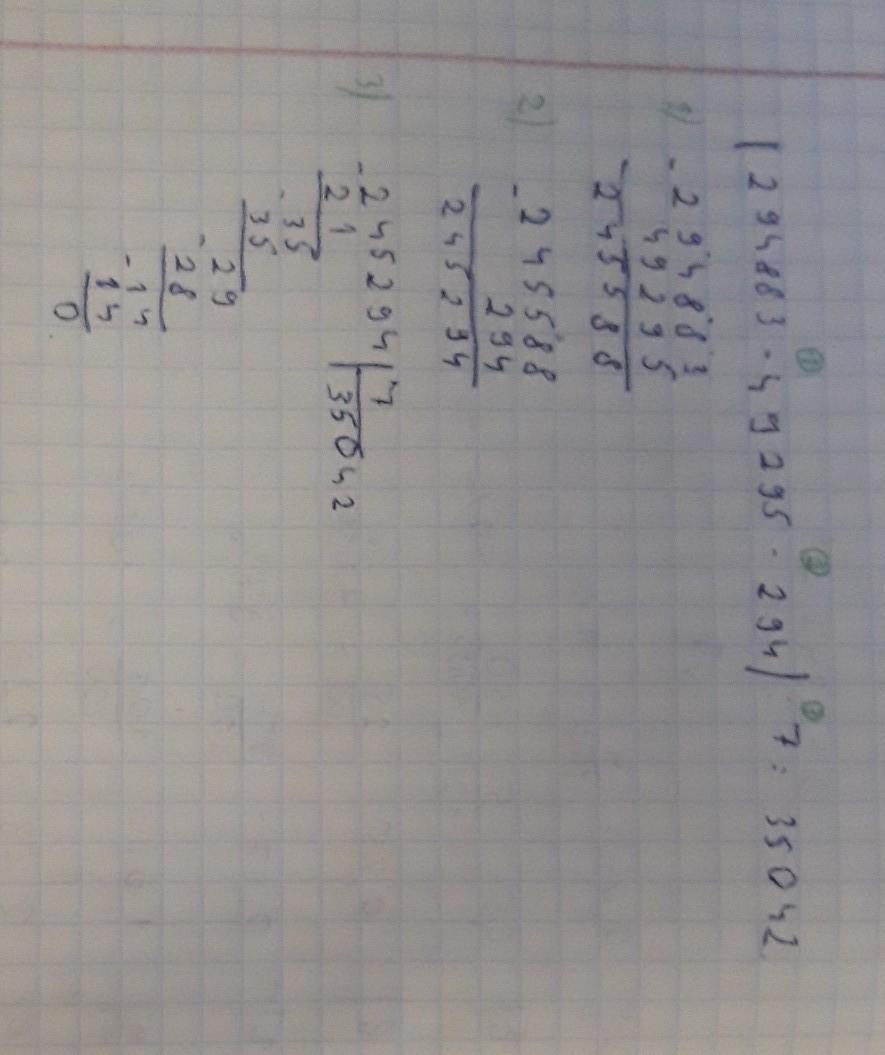 ① ② ③
(294883 - 49295 - 294) 7: 35042
1) - 294883
49295
245588
2) - 245588
294
245294
3) - 245294 | 7
21 | 35042
- 35
35
- 29
28
- 14
14
0